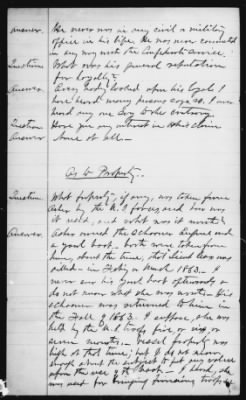 Answer. He never was in any civil or military
office in his life. He was never connected
in any way with the Confederate service.
Question What was his general reputation
for loyalty?
Answer. Every body looked upon him loyal. I
have heard many persons say so. I never
heard any one say to the contrary.
Question Have you any interest in this claim
Answer None at all.
As to Property.
Question. What property, if any, was taken from
Asher by the U.S. forces and how was
it used, and what was it worth?
Answer. Asher owned the schooner and
a yawl boat. both were taken from
him, about the time, that
in Feby or March 1863. I
never saw his yawl boat afterwards &
do not know what she was worth. His
schooner was returned to him in
the Fall of 1863. I suppose, she was
kept by the U.S. troops five or six or
seven months. Vessel property was
high at that time; but I do not know
enough about the subject to put any value
upon the use of the boat. I heard, she
was used for bringing